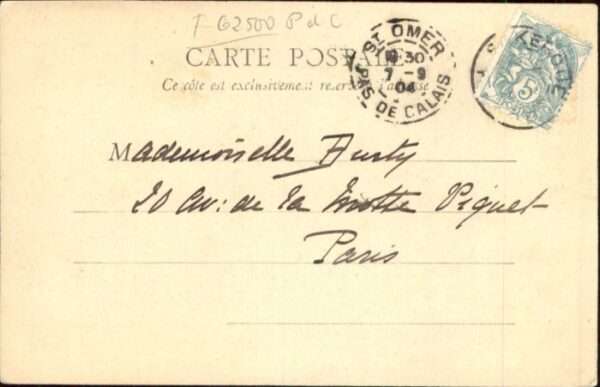 F-62500 P d C
CARTE POSTALE
Ce côté est exclusivement réservé à l'adresse
ST OMER
30
7 - 9
04
PAS DE CALAIS
5
Mademoiselle
20 av: de la Motte Piquet
Paris